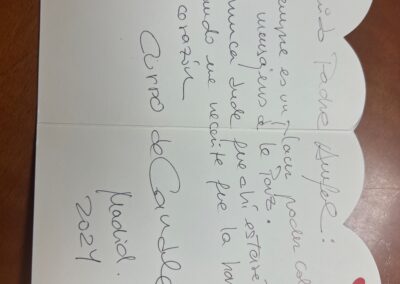 rido Padre Angel:
empre es un placer poder col
mensajeros de la Paz.
nunca dude que ahi estaré
ando me necesite que lo har
corazón
Curro de Candela
Madrid.
2024